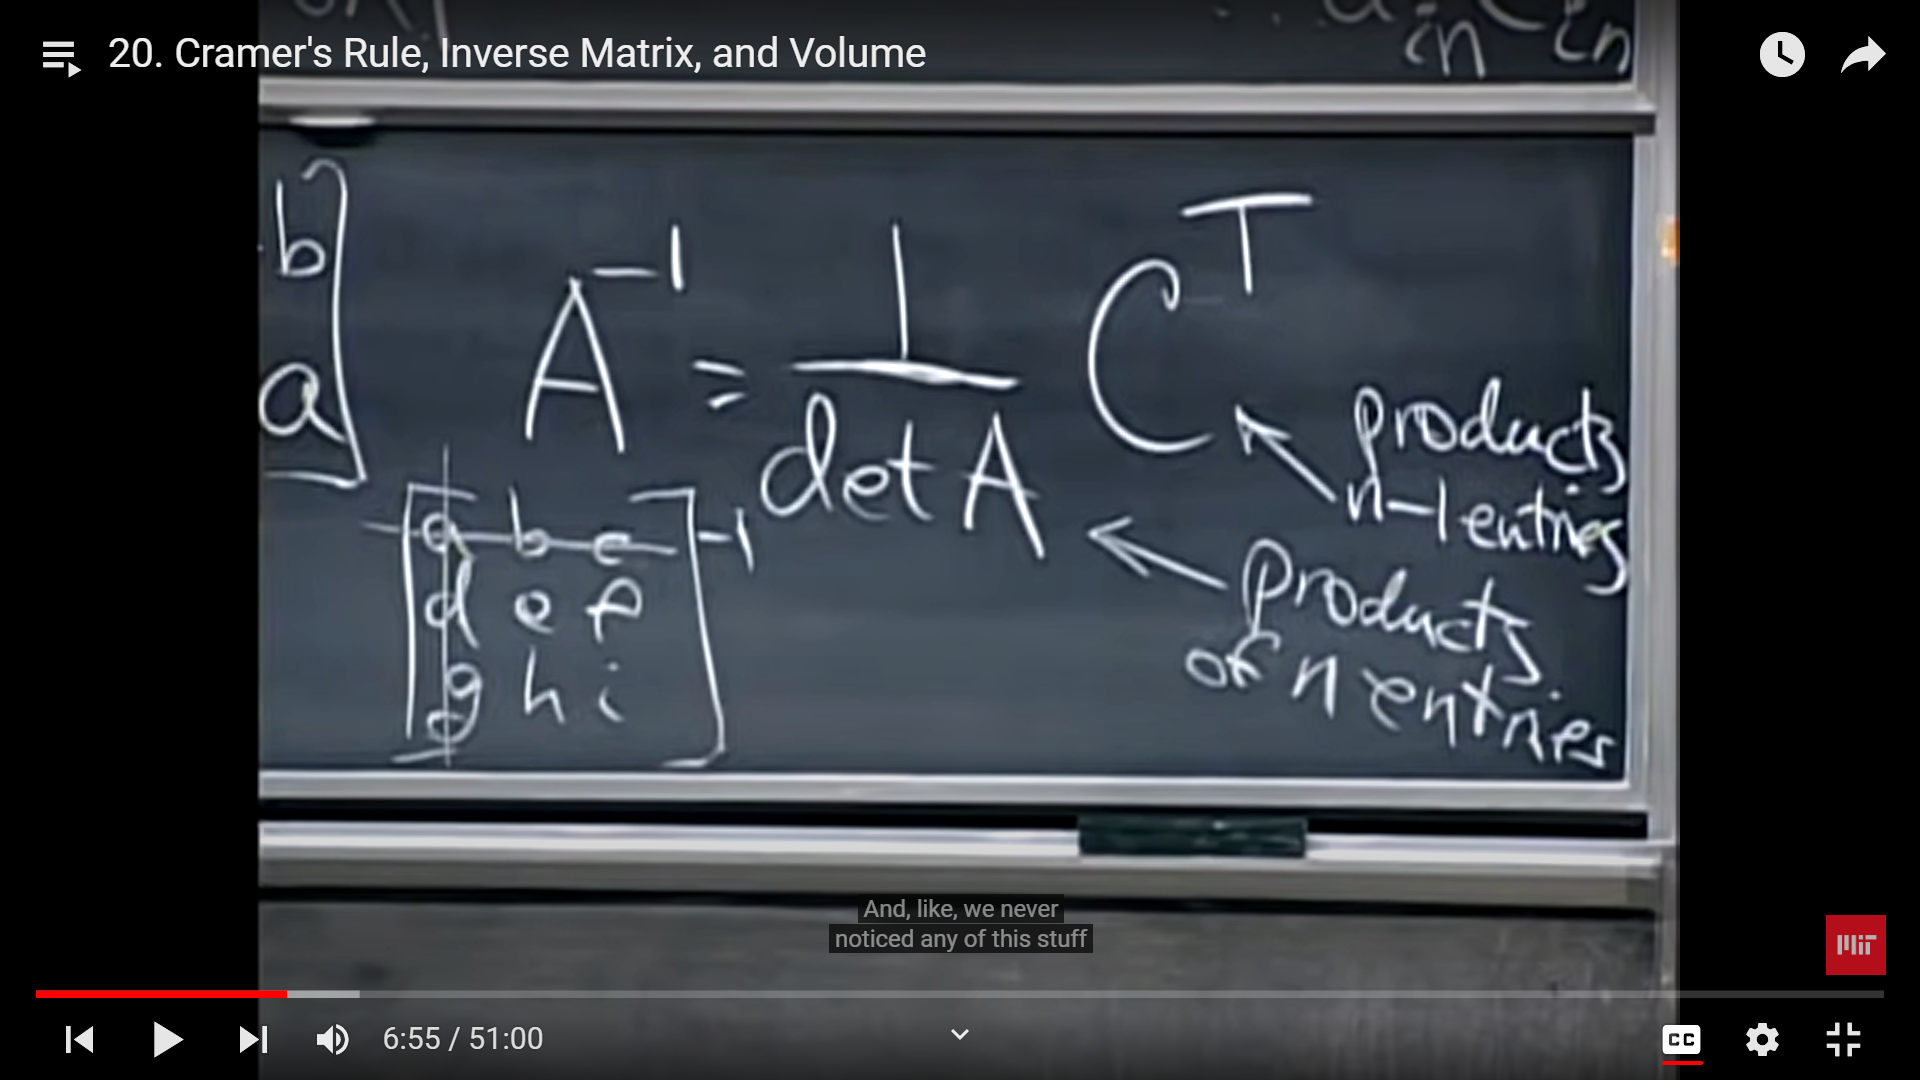 20. Cramer's Rule, Inverse Matrix, and Volume
in in
b
a
A⁻¹ = 1/det A Cᵀ
products
n-1 entries
products
of n entries
[a b c
d e f
g h i]⁻¹
And, like, we never
noticed any of this stuff
MIT
6:55 / 51:00
CC